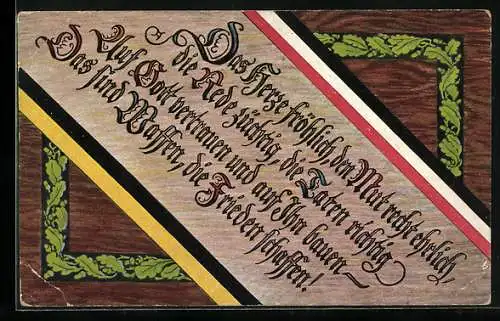 Das Herze fröhlich, den Mut recht ehrlich,
die Rede züchtig, die Taten richtig
Auf Gott vertrauen und auf Ihn bauen
Das sind Waffen, die Frieden schaffen!